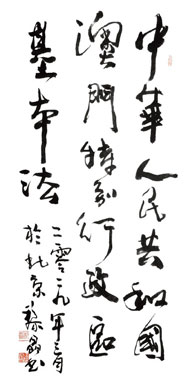 中華人民共和國
澳門特別行政區
基本法
二零一九年三月
於北京黎晶书